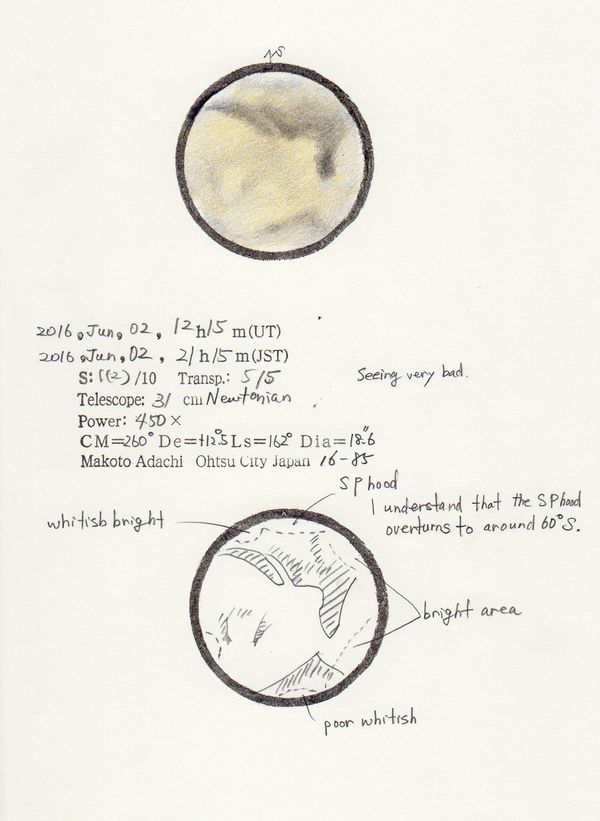 S
2016, Jun, 02, 12 h 15 m (UT)
2016, Jun, 02, 21 h 15 m (JST)
S: 1(2) /10 Transp.: 5/5
Seeing very bad.
Telescope: 31 cm Newtonian
Power: 450 ×
CM=260° De=+12.5° Ls=162° Dia=18.6"
Makoto Adachi Ohtsu City Japan 16-85
SPhood
I understand that the SPhood
overturns to around 60°S.
whitish bright
bright area
poor whitish